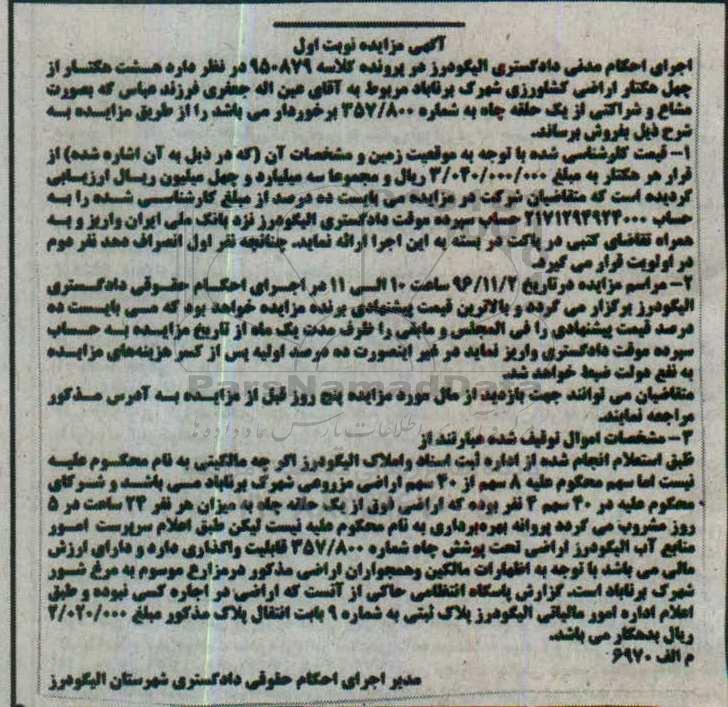 آگهی مزایده نوبت اول
اجرای احکام مدنی دادگستری الیگودرز در پرونده کلاسه ۹۵۰۸۷۹ در نظر دارد هشت هکتار از
چهل هکتار اراضی کشاورزی شهرک برناباد مربوط به آقای عین اله جعفری فرزند عباس که بصورت
مشاع و شراکتی از یک حلقه چاه به شماره ۳۵۷/۸۰۰ برخوردار می باشد را از طریق مزایده به
شرح ذیل بفروش برساند.
۱- قیمت کارشناسی شده با توجه به موقعیت زمین و مشخصات آن (که در ذیل به آن اشاره شده) از
قرار هر هکتار به مبلغ ۳/۰۴۰/۰۰۰/۰۰۰ ریال و مجموعا سه میلیارد و چهل میلیون ریال ارزیابی
گردیده است که متقاضیان شرکت در مزایده می بایست ده درصد از مبلغ کارشناسی شده را به
حساب ۲۱۷۱۲۹۴۹۲۴۰۰۰ حساب سپرده موقت دادگستری الیگودرز نزد بانک ملی ایران واریز و به
همراه تقاضای کتبی در پاکت در بسته به این اجرا ارائه نماید. چنانچه نفر اول انصراف دهد نفر دوم
در اولویت قرار می گیرد.
۲- مراسم مزایده درتاریخ ۹۶/۱۱/۲ ساعت ۱۰ الی ۱۱ در اجرای احکام حقوقی دادگستری
الیگودرز برگزار می گردد و بالاترین قیمت پیشنهادی برنده مزایده خواهد بود که می بایست ده
درصد قیمت پیشنهادی را فی المجلس و مابقی را ظرف مدت یک ماه از تاریخ مزایده به حساب
سپرده موقت دادگستری واریز نماید در غیر اینصورت ده درصد اولیه پس از کسر هزینه‌های مزایده
به نفع دولت ضبط خواهد شد.
ParsNamadData
متقاضیان می توانند جهت بازدید از مال مورد مزایده پنج روز قبل از مزایده به آدرس مذکور
مراجعه نمایند.
۳- مشخصات اموال توقیف شده عبارتند از
طبق استعلام انجام شده از اداره ثبت اسناد واملاک الیگودرز اگر چه مالکیتی به نام محکوم علیه
نیست اما سهم محکوم علیه ۸ سهم از ۴۰ سهم اراضی مزروعی شهرک برناباد می باشد و شرکای
محکوم علیه در ۴۰ سهم ۴ نفر بوده که اراضی فوق از یک حلقه چاه به میزان هر نفر ۲۴ ساعت در ۵
روز مشروب می گردد پروانه بهره‌برداری به نام محکوم علیه نیست لیکن طبق اعلام سرپرست امور
منابع آب الیگودرز اراضی تحت پوشش چاه شماره ۳۵۷/۸۰۰ قابلیت واگذاری دارد و دارای ارزش
مالی می باشد با توجه به اظهارات مالکین وهمجواران اراضی مذکور درمزارع موسوم به مرغ شور
شهرک برناباد است. گزارش پاسگاه انتظامی حاکی از آنست که اراضی در اجاره کسی نبوده و طبق
اعلام اداره امور مالیاتی الیگودرز پلاک ثبتی به شماره ۹ بابت انتقال پلاک مذکور مبلغ ۲/۰۲۰/۰۰۰
ریال بدهکار می باشد.
م الف ۶۹۷۰
مدیر اجرای احکام حقوقی دادگستری شهرستان الیگودرز